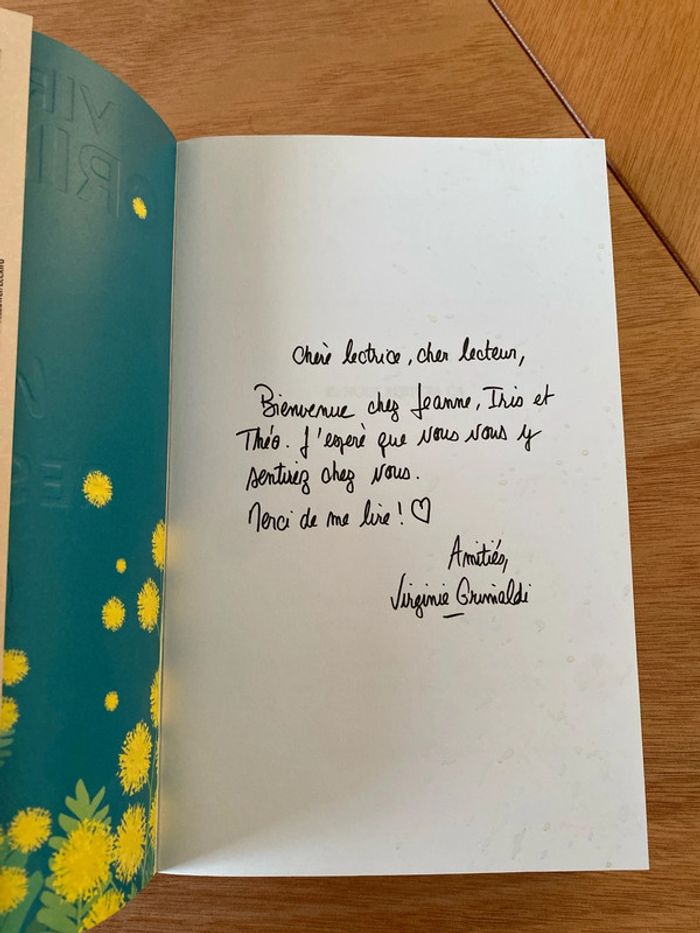 Chère lectrice, cher lecteur,
Bienvenue chez Jeanne, Iris et
Théo. J'espère que vous vous y
sentirez chez vous.
Merci de me lire ! ♡
Amitiés,
Virginie Grimaldi